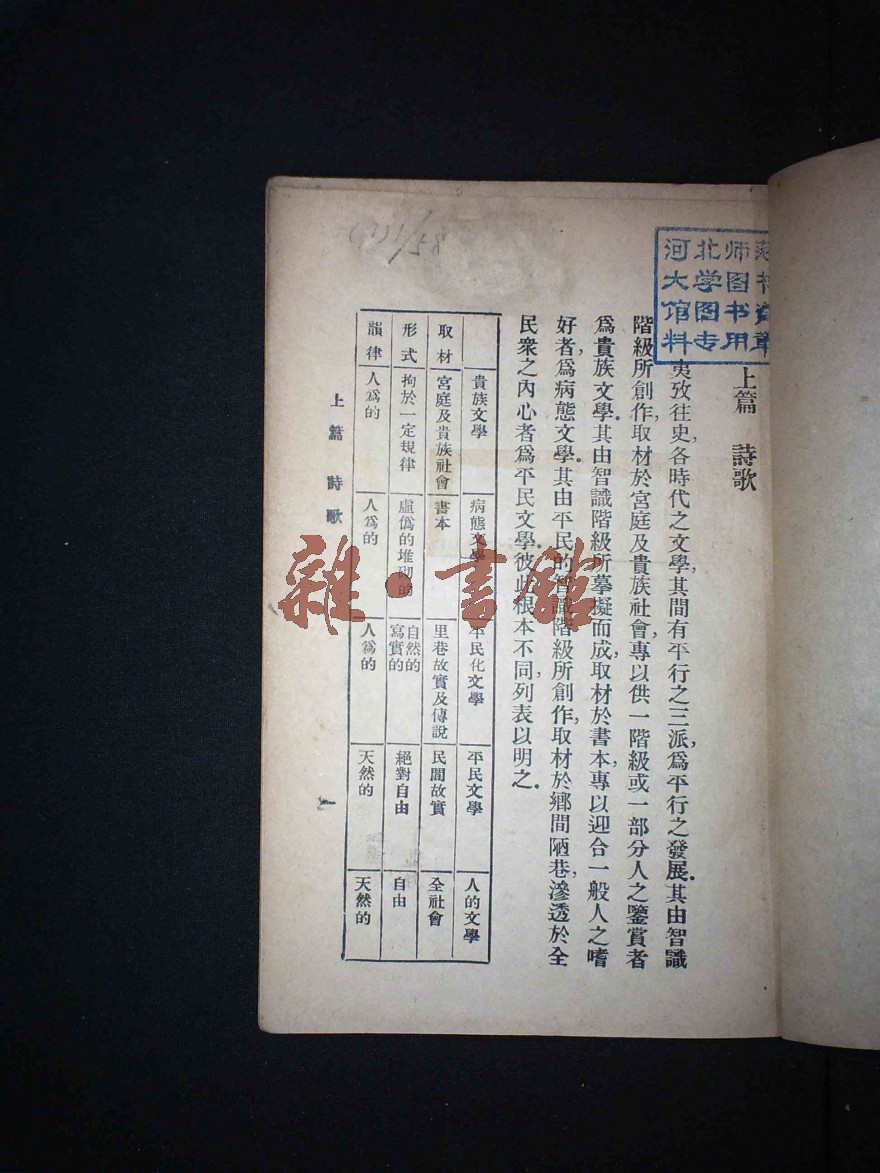 上篇　詩歌
夷攷往史，各時代之文學，其間有平行之三派，爲平行之發展。其由智識
階級所創作，取材於宮庭及貴族社會，專以供一階級或一部分人之鑒賞者
爲貴族文學。其由智識階級所摹擬而成，取材於書本，專以迎合一般人之嗜
好者，爲病態文學。其由平民的智識階級所創作，取材於鄉間陋巷，滲透於全
民衆之內心者爲平民文學。彼此根本不同，列表以明之。
貴族文學　病態文學　平民化文學　平民文學　人的文學
取材　宮庭及貴族社會　書本　里巷故實及傳說　民間故實　全社會
形式　拘於一定規律　虛僞的堆砌的　自然的寫實的　絕對自由　自由
韻律　人爲的　人爲的　人爲的　天然的　天然的
上篇　詩歌
一
河北师
大学图书
馆图书
料专用章
1/58
雜·書館